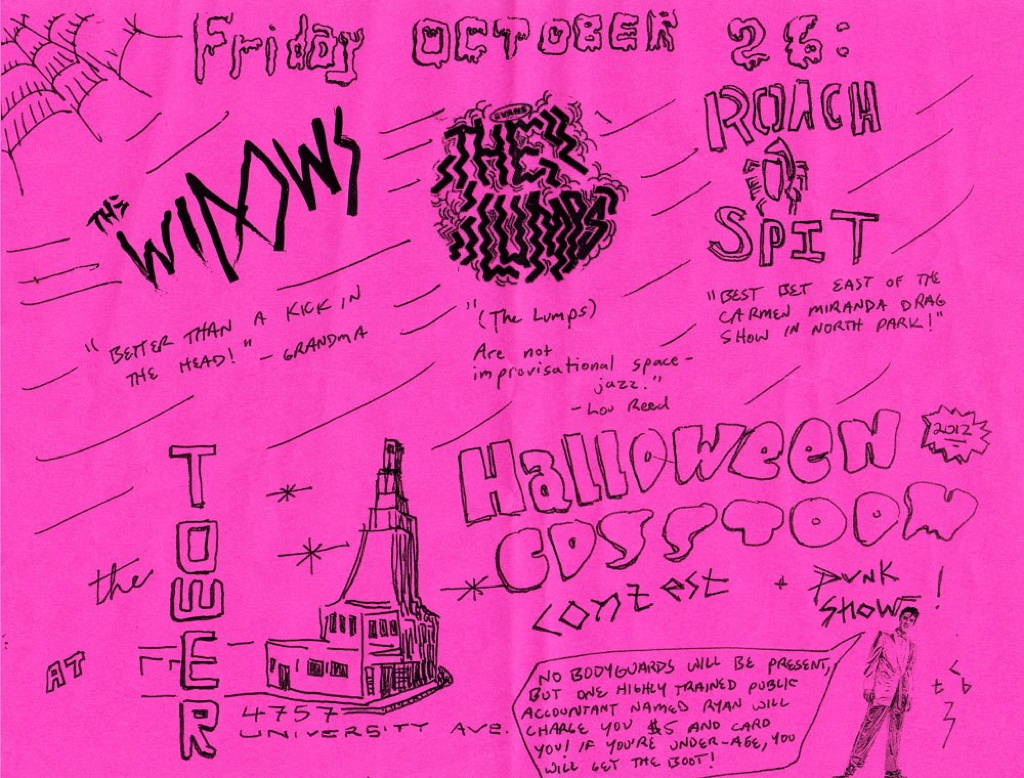 Friday OCTOBER 26:
THE
WIDOWS
THE
LUMPS
ROACH
SPIT
"BETTER THAN A KICK IN
THE HEAD!" - GRANDMA
"(The Lumps)
Are not
improvisational space-
jazz."
- Lou Reed
"BEST BET EAST OF THE
CARMEN MIRANDA DRAG
SHOW IN NORTH PARK!"
Halloween
2012
COSSTOOM
contest + PUNK
SHOW!
AT
the
TOWER
4757
UNIVERSITY AVE.
NO BODYGUARDS WILL BE PRESENT,
BUT ONE HIGHLY TRAINED PUBLIC
ACCOUNTANT NAMED RYAN WILL
CHARGE YOU $5 AND CARD
YOU! IF YOU'RE UNDER-AGE, YOU
WILL GET THE BOOT!